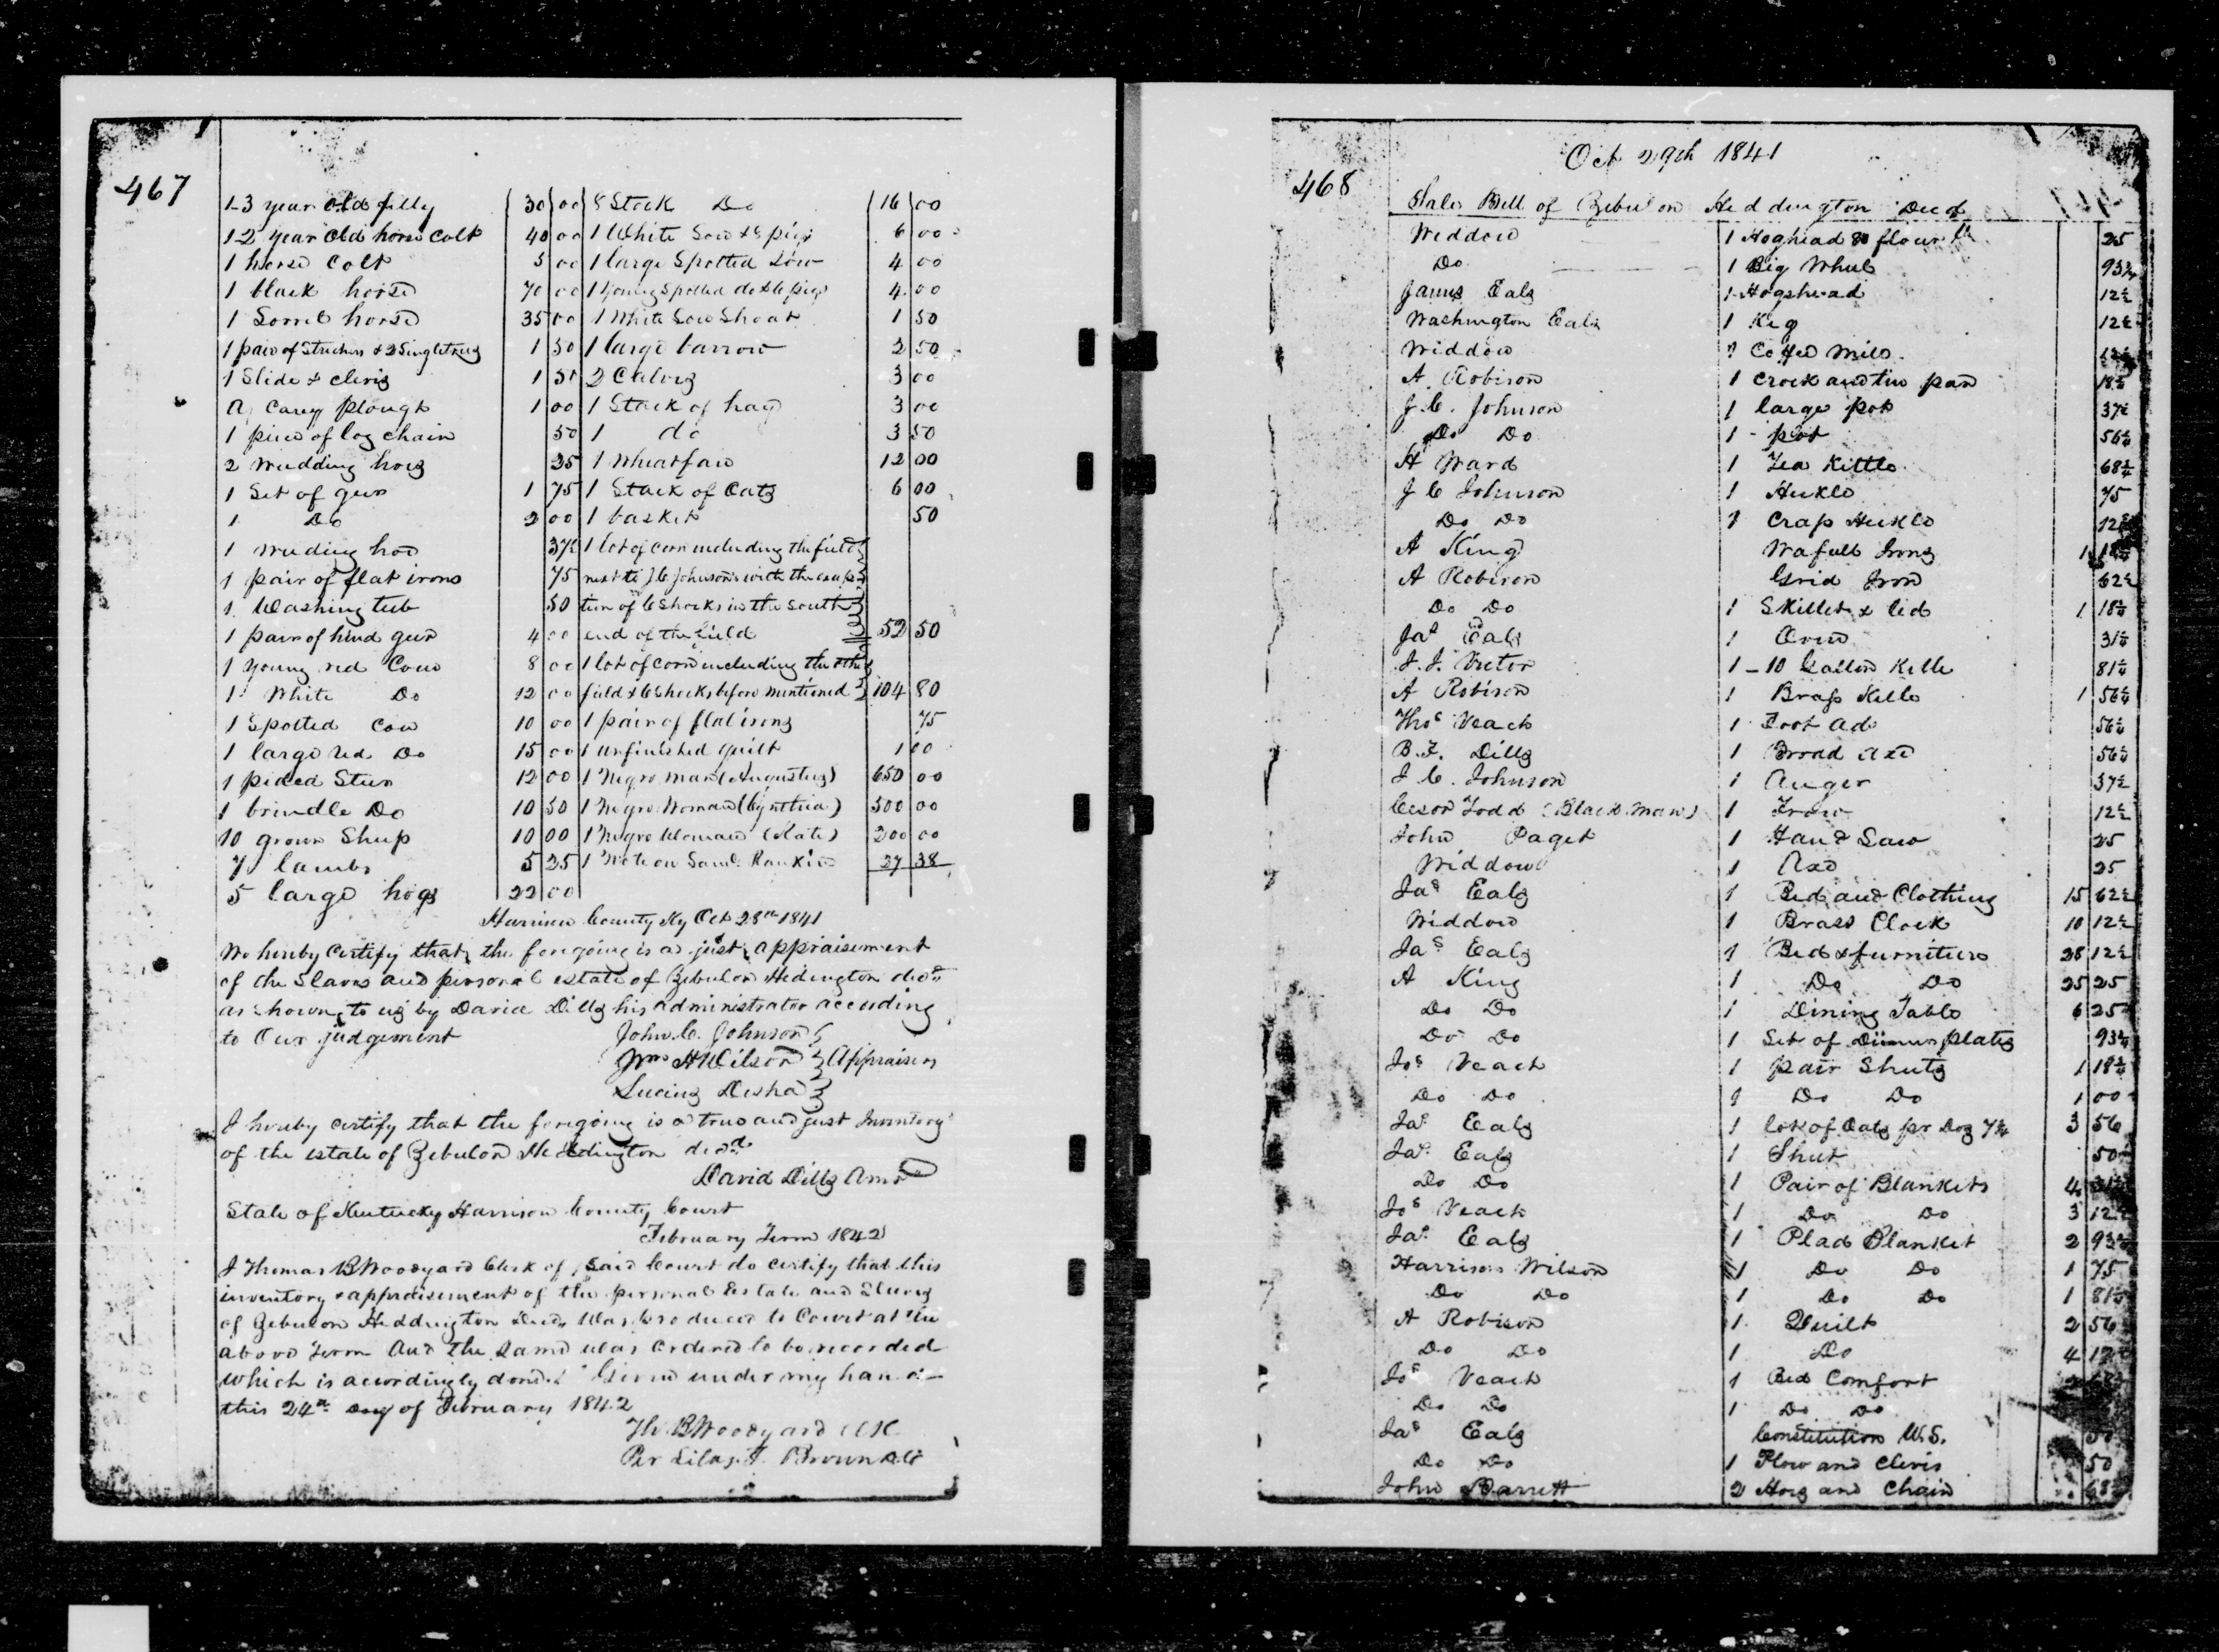 467
1-3 year old filly 30 00
1-2 year old horse Colt 40 00
1 horse Colt 5 00
1 black horse 70 00
1 Sorrel horse 35 00
1 pair of Stretchers & 2 Singletrees 1 50
1 Slide & clevis 1 50
a Carey plough 1 00
1 piece of log chain 50
2 weeding hoes 25
1 Set of gear 1 75
1 Do 2 00
1 weeding hoe 37½
1 pair of flat irons 75
1 Washing tub 50
1 pair of hind gear 4 00
1 young red Cow 8 00
1 White Do 12 00
1 Spotted Cow 10 00
1 large red Do 15 00
1 pided Steer 12 00
1 brindle Do 10 50
10 grown Sheep 10 00
7 lambs 5 25
5 large hogs 22 00
8 Stock Do 16 00
1 White Sow & pigs 6 00
1 large Spotted Sow 4 00
1 young Spotted do & 6 pigs 4 00
1 White Sow Shoat 1 50
1 large barrow 2 50
2 Calves 3 00
1 Stack of hay 3 00
1 do 3 50
1 Wheatfan 12 00
1 Stack of Oats 6 00
1 basket 50
1 lot of corn including the field
next to J C Johnson's with the excep
tion of 6 Shocks in the South
end of the field 52 50
1 lot of corn including the other
field & 6 Shocks before mentioned 104 80
1 pair of flat irons 75
1 unfinished quilt 1 00
1 Negro man (Augustus) 650 00
1 Negro Woman (Cynthia) 500 00
1 Negro Woman (Kate) 200 00
1 Note on Saml Rankin 27 38
Harrison County Ky Oct 28th 1841
We hereby Certify that the foregoing is a just appraisement
of the Slaves and personal estate of Zebulon Hedington decd
as shown to us by David Dills his administrator according
to Our judgement
John C. Johnson
Wm A Wilson Appraisers
Lucius Desha
I hereby certify that the foregoing is a true and just Inventory
of the estate of Zebulon Heddington decd
David Dills Amr
State of Kentucky Harrison County Court
February Term 1842
I Thomas B Woodyard Clerk of Said Court do certify that this
inventory & appraisement of the personal Estate and Slaves
of Zebulon Heddington Decd Was produced to Court at the
above Term and the Same was Ordered to be recorded
which is accordingly done. Given under my hand
this 24th Day of February 1842
Th. B Woodyard Clk
Per Silas T. Brown DC
Oct 29th 1841
468
Sales Bill of Zebulon Heddington Decd
Widdow 1 Hoghead & flour 25
Do 1 Big Wheel 93¾
James Eals 1 Hogshead 12½
Washington Eals 1 Keg 12½
Widdow 1 Coffee Mill
A. Robison 1 Crock and tin pan 18¾
J. C. Johnson 1 large pot 37½
Do Do 1 - pot 56¼
A Ward 1 Tea Kittle 68¾
J C Johnson 1 Heckle 75
Do Do 1 Crap Heckle 12½
A King Wafull Irons 1 18¾
A Robison Grid Iron 62½
Do Do 1 Skillet & lid 1 18¾
Jas Eals 1 Oven 31¼
J. J. Victor 1 - 10 Gallon Kettle 81¼
A Robison 1 Brass Kettle 1 56¼
Thos Veach 1 Foot Ads 56¼
B. F. Dills 1 Broad Axe 56¼
J. C. Johnson 1 Auger 37½
Ceser Todd (Black Man) 1 Frow 12½
John Paget 1 Hand Saw 25
Widdow 1 Axe 25
Jas Eals 1 Bed and Clothing 15 62½
Widdow 1 Brass Clock 10 12½
Jas Eals 1 Bed & furniture 28 12½
A King 1 Do Do 25 25
Do Do 1 Dining Table 6 25
Do Do 1 Set of Dinner plates 93¾
Jos Veach 1 pair Sheets 1 18¾
Do Do 1 Do Do 1 00
Jas Eals 1 lot of Oats pr Doz 7¾ 3 56
Jas Eals 1 Sheet 50
Do Do 1 Pair of Blankets 4 31¼
Jos Veach 1 Do Do 3 12½
Jas Eals 1 Plad Blanket 2 93¾
Harrison Wilson 1 Do Do 1 75
Do Do 1 Do Do 1 81¼
A Robison 1 Quilt 2 56
Do Do 1 Do 4 12½
Jos Veach 1 Bed Comfort
Do Do 1 Do Do
Jas Eals Constitution U.S. 50
Do Do 1 Plow and Clevis 50
John Barrett 2 Hoes and Chain 68¾